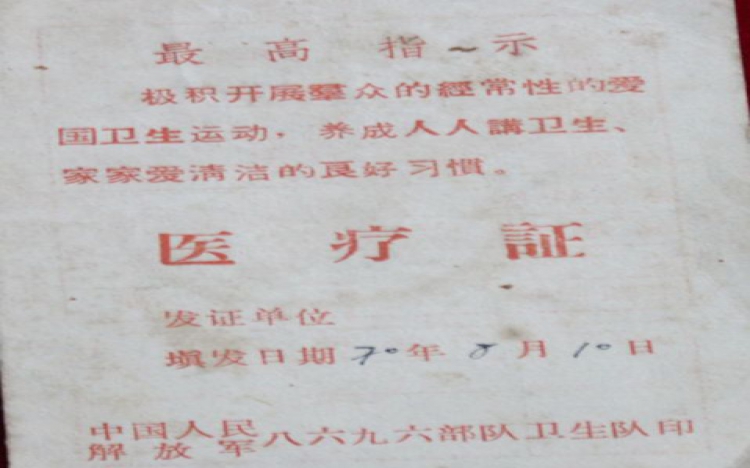 最高指示
极积开展羣众的經常性的爱
国卫生运动，养成人人講卫生、
家家爱清洁的良好习慣。
医疗証
发证单位
填发日期 70年 8月 10日
中国人民
解放军八六九六部队卫生队印